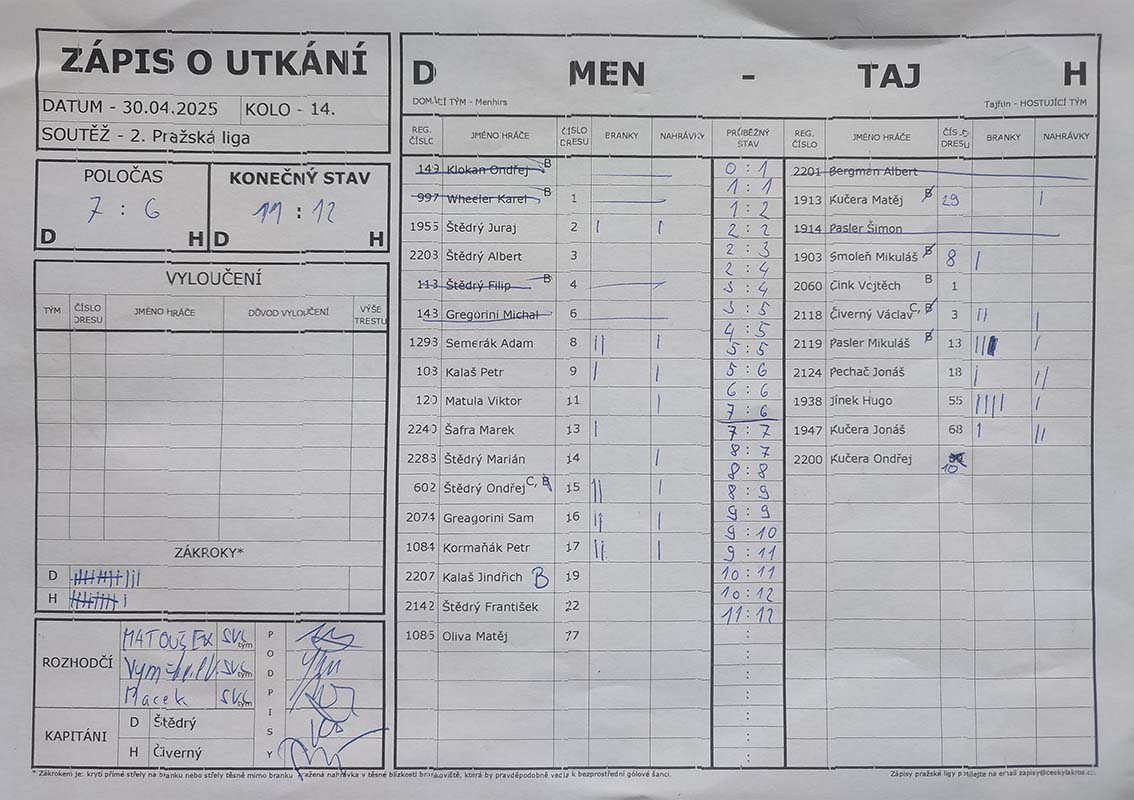 ZÁPIS O UTKÁNÍ
DATUM - 30.04.2025 KOLO - 14.
SOUTĚŽ - 2. Pražská liga
POLOČAS KONEČNÝ STAV
7 : 6 11 : 12
D H D H
VYLOUČENÍ
TÝM ČÍSLO DRESU JMÉNO HRÁČE DŮVOD VYLOUČENÍ VÝŠE TRESTU
ZÁKROKY*
D
H
ROZHODČÍ
MATOUŠEK SVS tým
SVS tým
Macek SVS tým
PODPISY
KAPITÁNI
D Štědrý
H Čiverný
D MEN - TAJ H
DOMÁCÍ TÝM - Menhirs Tajfun - HOSTUJÍCÍ TÝM
REG. ČÍSLO JMÉNO HRÁČE ČÍSLO DRESU BRANKY NAHRÁVKY PRŮBĚŽNÝ STAV REG. ČÍSLO JMÉNO HRÁČE ČÍSLO DRESU BRANKY NAHRÁVKY
149 Klokan Ondřej B
997 Wheeler Karel B 1
1955 Štědrý Juraj 2 | |
2203 Štědrý Albert 3
113 Štědrý Filip B 4
143 Gregorini Michal 6
1293 Semerák Adam 8 || |
103 Kalaš Petr 9 | |
120 Matula Viktor 11 |
2240 Šafra Marek 13 |
2283 Štědrý Marián 14 |
602 Štědrý Ondřej C, B 15 ||
2074 Greagorini Sam 16 || |
1084 Kormaňák Petr 17 || |
2207 Kalaš Jindřich B 19
2142 Štědrý František 22
1085 Oliva Matěj 77
0 : 1
1 : 1
1 : 2
2 : 2
2 : 3
2 : 4
3 : 4
3 : 5
4 : 5
5 : 5
5 : 6
6 : 6
7 : 6
7 : 7
8 : 7
8 : 8
8 : 9
9 : 9
9 : 10
9 : 11
10 : 11
10 : 12
11 : 12
2201 Bergman Albert
1913 Kučera Matěj B 29 |
1914 Pasler Šimon
1903 Smoleň Mikuláš B 8 |
2060 Cink Vojtěch B 1
2118 Čiverný Václav C, B 3 || |
2119 Pasler Mikuláš B 13 || |
2124 Pechač Jonáš 18 | ||
1938 Jínek Hugo 55 |||| |
1947 Kučera Jonáš 68 | ||
2200 Kučera Ondřej 10
* Zákrokem je: krytí přímé střely na branku nebo střely těsně mimo branku, zražená nahrávka v těsné blízkosti brankoviště, která by pravděpodobně vedla k bezprostřední gólové šanci.
Zápisy pražské ligy posílejte na email zapisy@ceskylakros.cz.